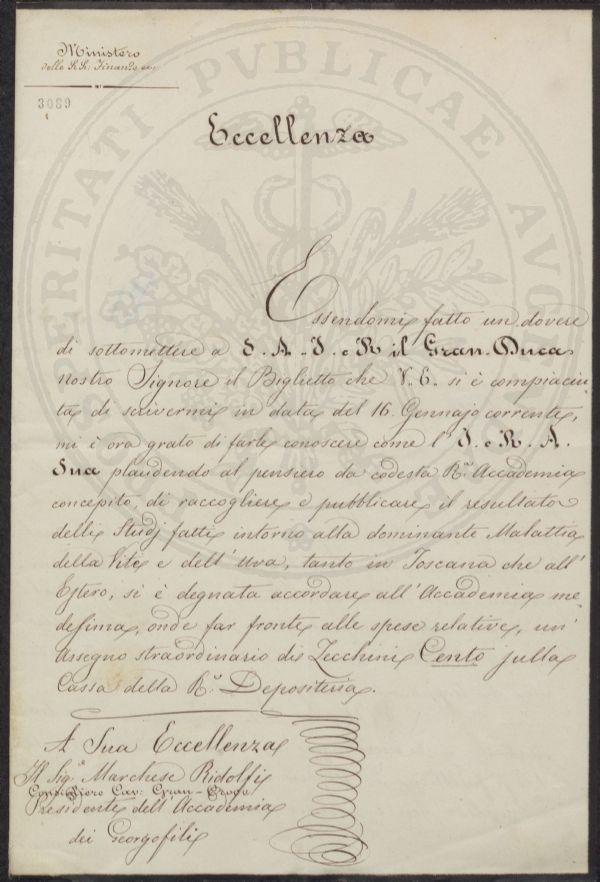 Ministero
delle RR: Finanze
3089
Eccellenza
Essendomi fatto un dovere
di sottomettere a S. A. I. e R il Gran-Duca
nostro Signore il Biglietto che V. E. si è compiaciu-
ta di scrivermi in data del 16. Gennajo corrente,
mi è ora grato di farle conoscere come l' I. e R. A.
Sua plaudendo al pensiero da codesta Rª Accademia
concepito, di raccogliere e pubblicare il resultato
delli Studj fatti intorno alla dominante Malattia
della Vite e dell' Uva, tanto in Toscana che all'
Estero, si è degnata accordare all' Accademia me-
desima, onde far fronte alle spese relative, un'
Assegno straordinario di Zecchini Cento sulla
Cassa della Rª Depositeria.
A Sua Eccellenza
Il Sigʳ Marchese Ridolfi
Consigliere Cav: Gran-Croce
Presidente dell' Accademia
dei Georgofili
PROSPERITATI PVBLICAE AVG